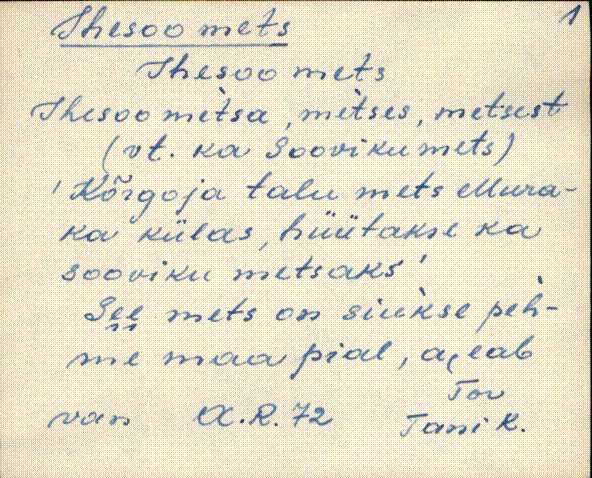 Ihesoo mets
1
Ihesoo mets
Ihesoo mètsa, mètses, metsest
(vt. ka Sooviku mets)
'Kõrgoja talu mets Mura-
ka külas, hüütakse ka
sooviku metsaks'
See mets on siùkse pèh-
me maa pial,
van A.R. 72
Tor
Tani K.